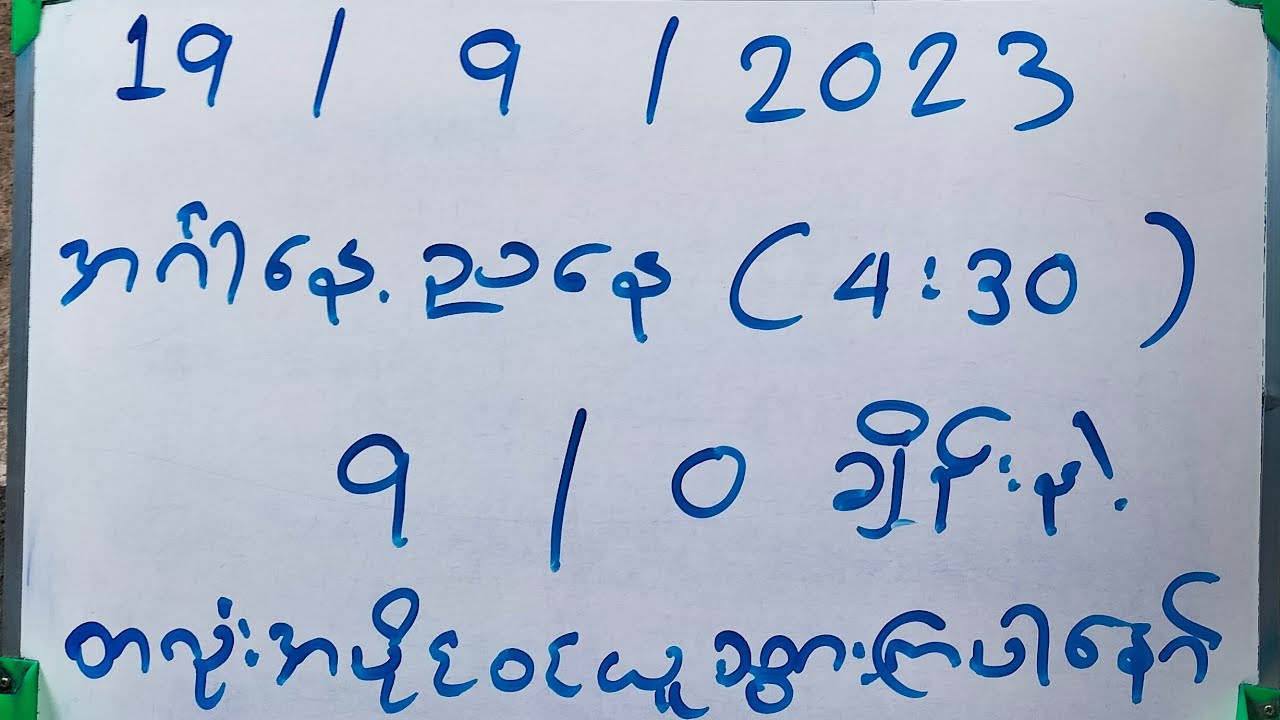 19 / 9 / 2023
အင်္ဂါနေ့ ညနေ ( 4:30 )
9 / 0 ချိန်းနဲ့
တလုံးအပိုင်ဝင်ယူသွားကြပါနော်